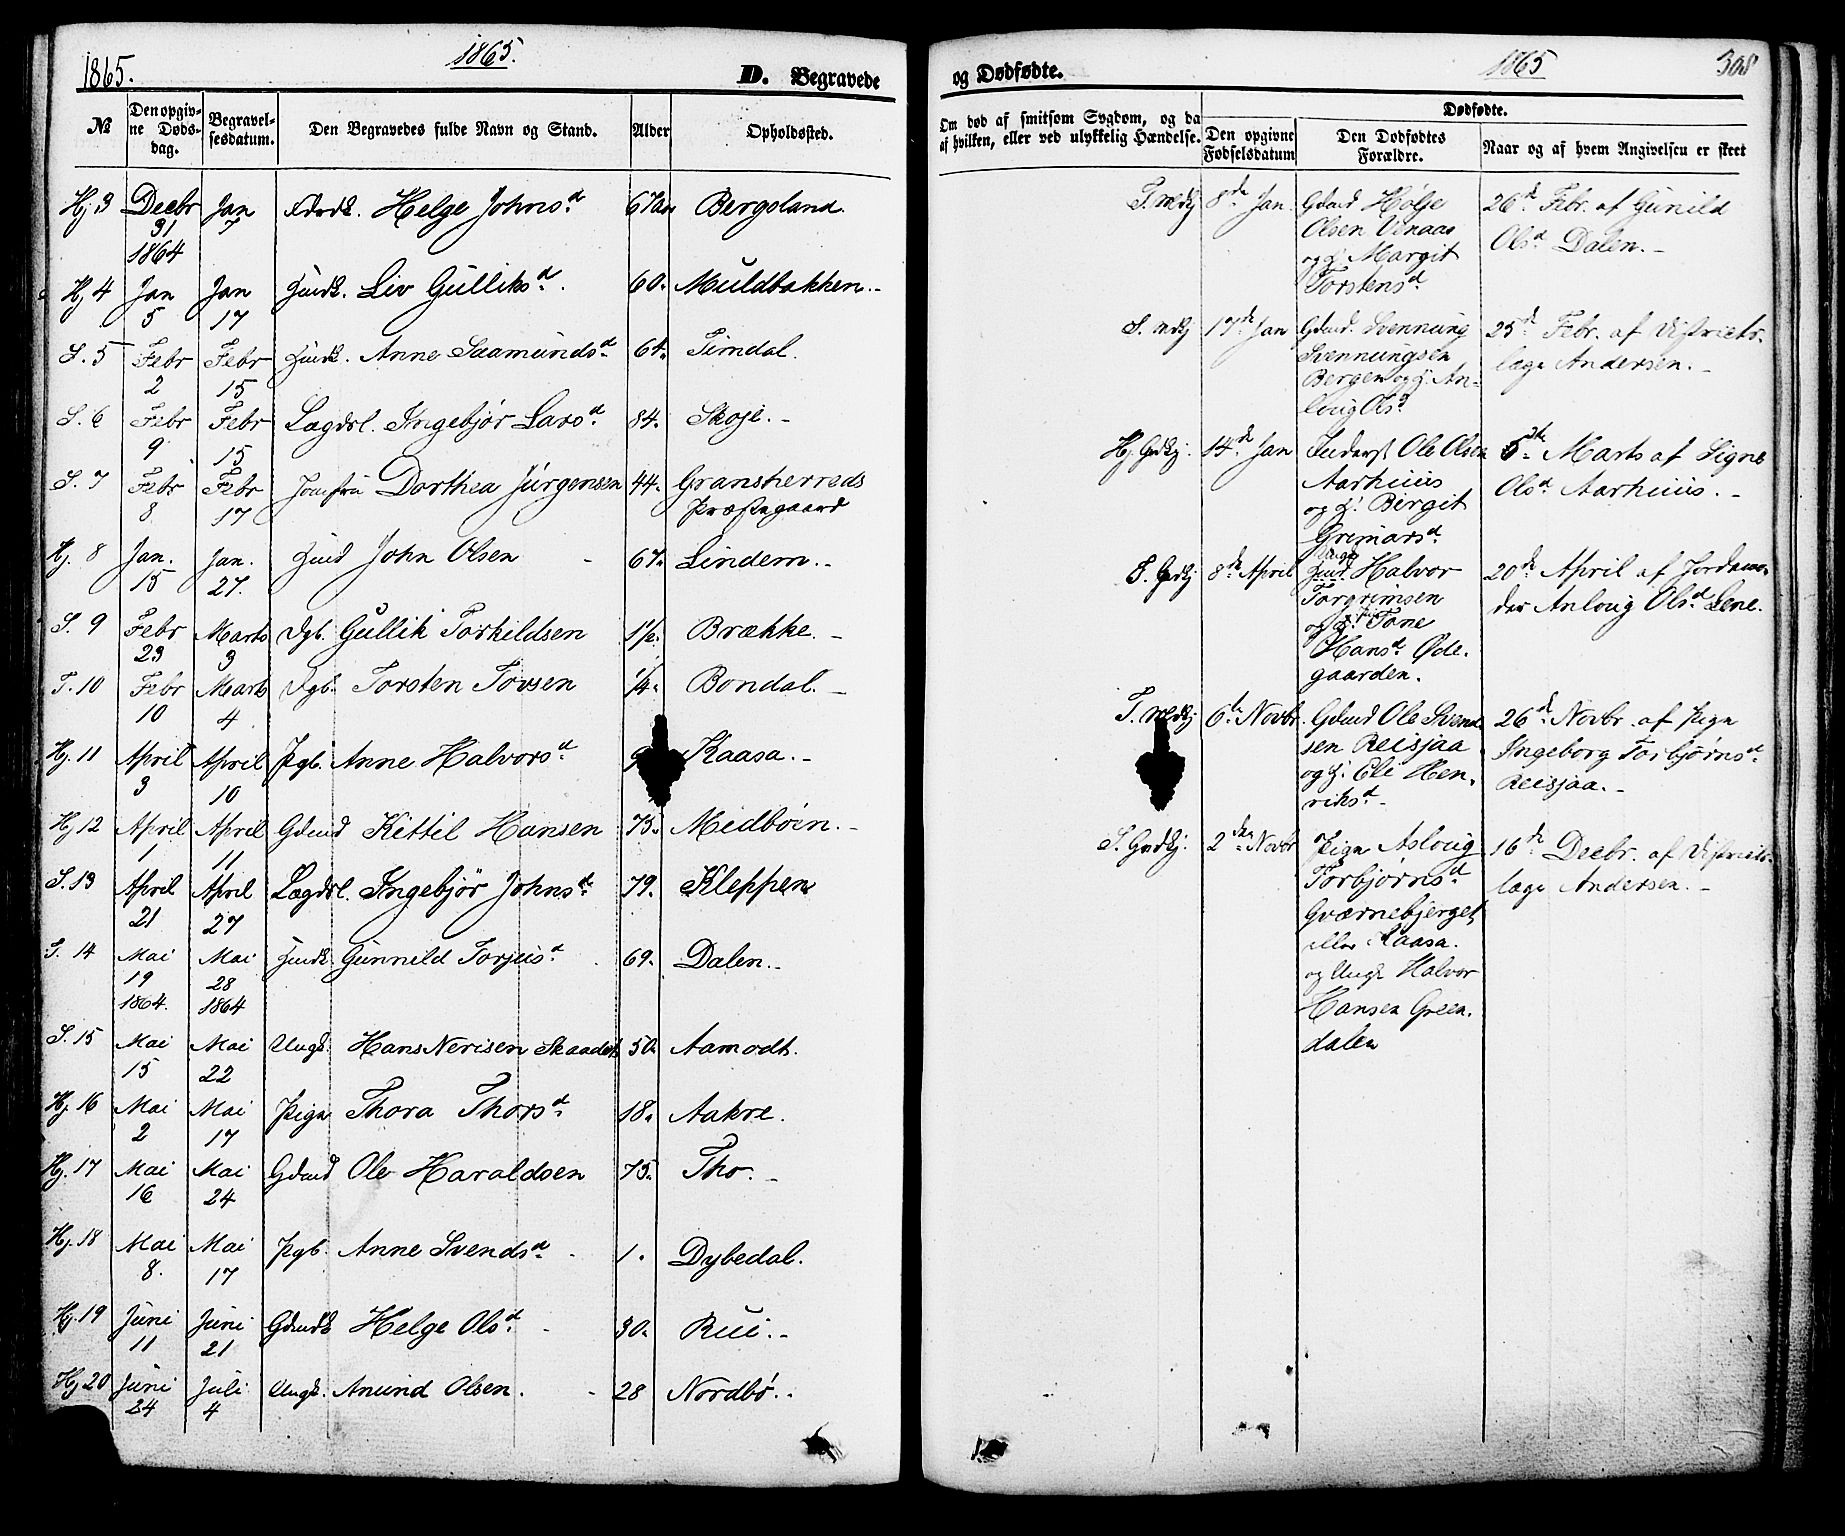 1865.
1865.
D. Begravede
№
Den opgivne Døds-dag.
Begravelsesdatum.
Den Begravedes fulde Navn og Stand.
Alder
Opholdssted.
Hj 3 Decbr 31 1864 Jan 7 Helge Johnsd. 67 Bergsland.
Hj 4 Jan 5 Jan 17 Liv Gulliksd. 60. Muldbakken.-
S. 5 Febr 2 Febr 15 Anne Saamundsd. 64. Timdal.
S. 6 Febr 9 Febr 15 Lægdsl. Ingebjør Larsd. 84. Skoje.-
S. 7 Febr 8 Febr 17 Jomfru Dorthea Jürgensen 44. Gransherreds
Præstegaard
Hj. 8 Jan. 15 Jan. 27. John Olsen 67. Lindem.-
S. 9 Febr 23 Marts 3 Dgb. Gullik Torkildsen 1/2. Brække.-
T. 10 Febr 10 Marts 4 Dgb. Torsten Tovsen 1/4. Bondal.-
Hj. 11 April 3 April 10 Pgb. Anne Halvorsd. Kaasa.-
Hj 12 April 1 April 11 Gdmd Kittil Hansen 75. Midbøen.-
S. 13 April 21 April 27 Lægdsl. Ingebjör Johnsd. 79. Kleppen
14 Mai 19 1864. Mai 28 1864 Gunnild Torjusd. 69. Dalen.-
S. 15 Mai 15 Mai 22 Ungk. Hans Nerisen 50. Aamodt.
Hj. 16 Mai 2 Mai 17 Pige Thora Thorsd. 18. Aakre.
Hj. 17 Mai 16 Mai 24 Gdmd Ole Haraldsen 75. Tho.-
Hj. 18 Mai 8. Mai 17 Pgb. Anne Svendsd. 1. Dybedal.
Hj. 19 Juni 11 Juni 21 Gdmdk Helge Olsd. 30. Rui.-
Hj 20 Juni 24 Juli 4 Ungk. Anund Olsen. 28 Nordbø.-
og Dødfødte.
1865
308
Om død af smitsom Sygdom, og da
af hvilken, eller ved ulykkelig Hændelse.
Dødfødte.
Den opgivne Fødselsdatum
Den Dødfødtes Forældre.
Naar og af hvem Angivelsen er skeet
T. 8de Jan. Gdmd Hølje
Olsen Venaas
og H. Margit
Torstensd.
26de Febr. af Gunild
Olsd. Dalen.-
S. 17de Jan Gdmd. Svennung
Svennungsen
Bergen og H. An-
loug Olsd.
25de Febr. af Districts-
læge Andersen.-
Hj. 14de Jan Inderst Ole Olsen
Aarhuus
og H. Bergit
Grimarsd.
5te Marts af Signe
Olsd. Aarhuus.-
S. 8de April Halvor
Torgrimsen
og Tone
Hansd. Øde-
gaarden.
20de April af Jordemo-
der Anloug Olsd. Lene.
T. 6te Novbr. Gdmd Ole Svend-
sen Reisjaa
og H. Eli Hen-
riksd.
26de Novbr. af Pige
Ingeborg Torbjørnsd.
Reisjaa.-
S. 2den Novbr Pige Asloug
Torbjørnsd.
Gværnebjerget
eller Kaasa.
og Ungk Halvor
Hansen Green-
dalen
16de Decbr. af Districts-
læge Andersen.-